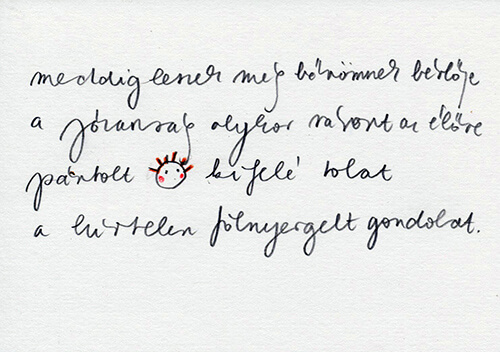 meddig leszek még bőrömnek bérlője
a józanság olykor az előre
pártolt kifelé tolat
a hirtelen fölnyergelt gondolat.